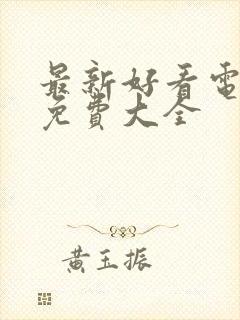 最新好看電
免費大全
黃玉振